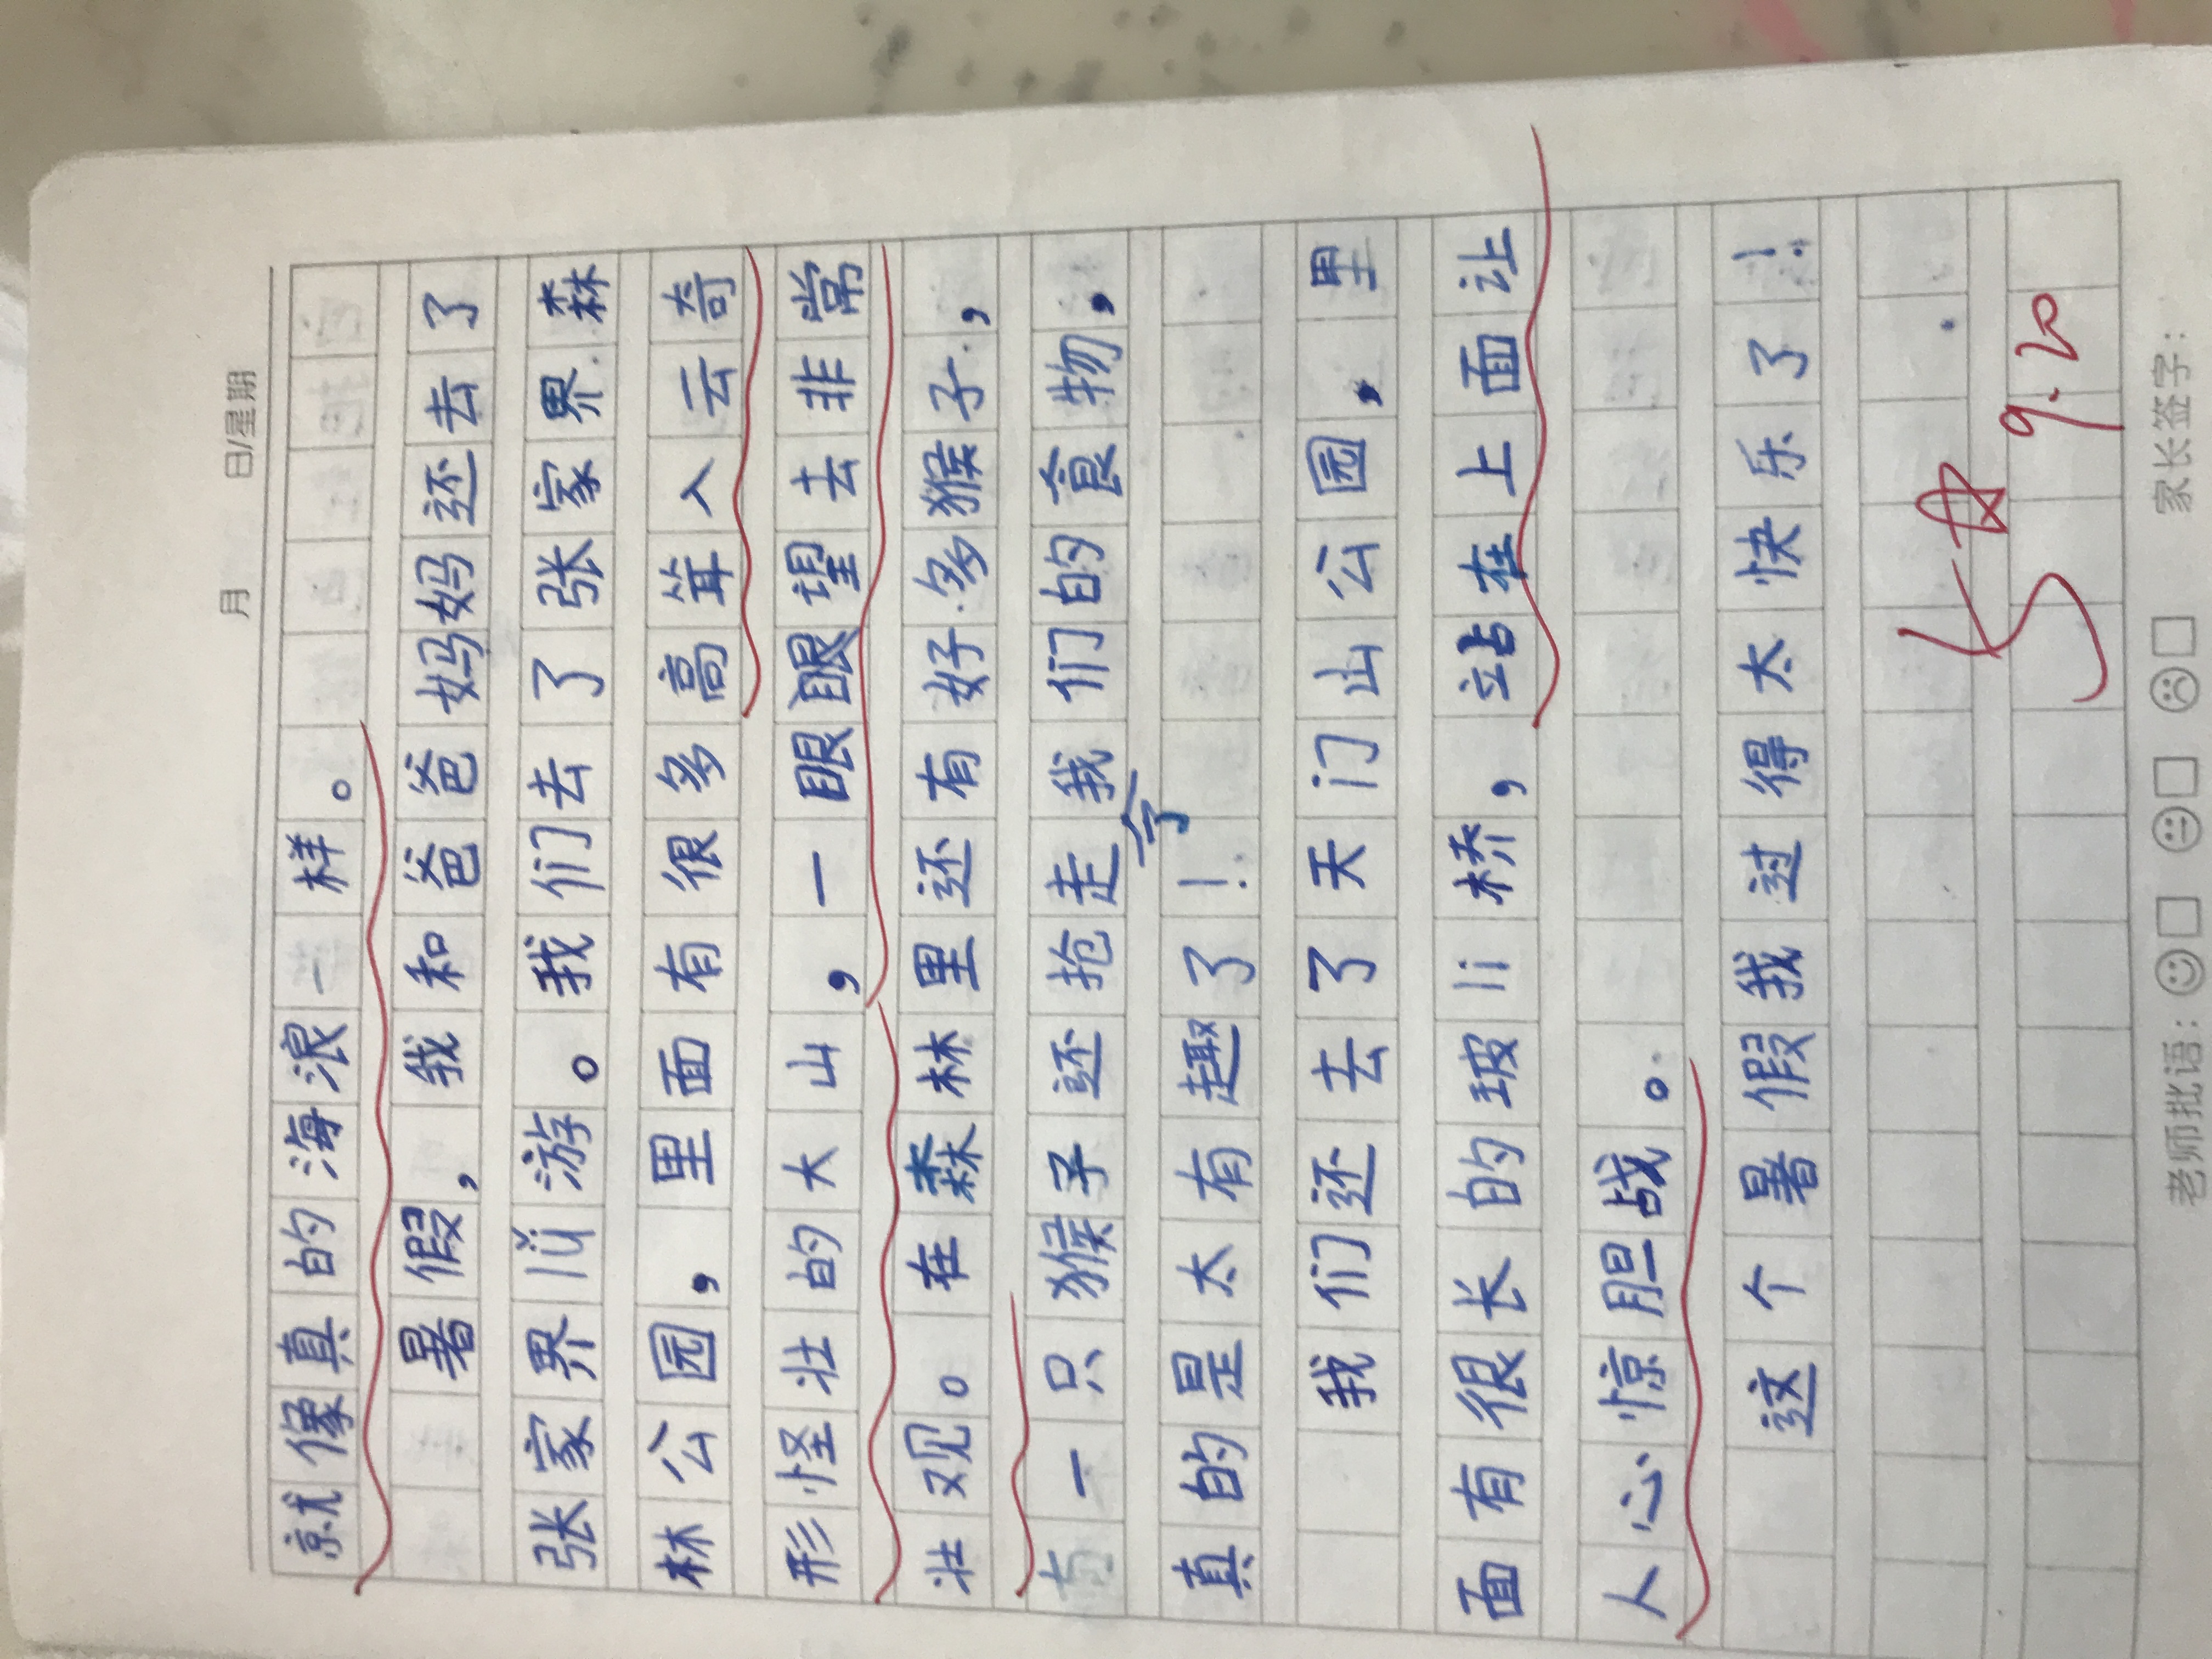 月 日/星期
就像真的海浪一样。
暑假,我和爸爸妈妈还去了
张家界lǚ游。我们去了张家界森
林公园,里面有很多高耸入云奇
形怪壮的大山,一眼眼望去非常
壮观。在森林里还有好多猴子,
有一只猴子还抢走我们的食物,
了
真的是太有趣了!
我们还去了天门山公园,里
面有很长的玻li桥,站在上面让
人心惊胆战。
这个暑假我过得太快乐了!
5☆
9.20
老师批语: 家长签字: